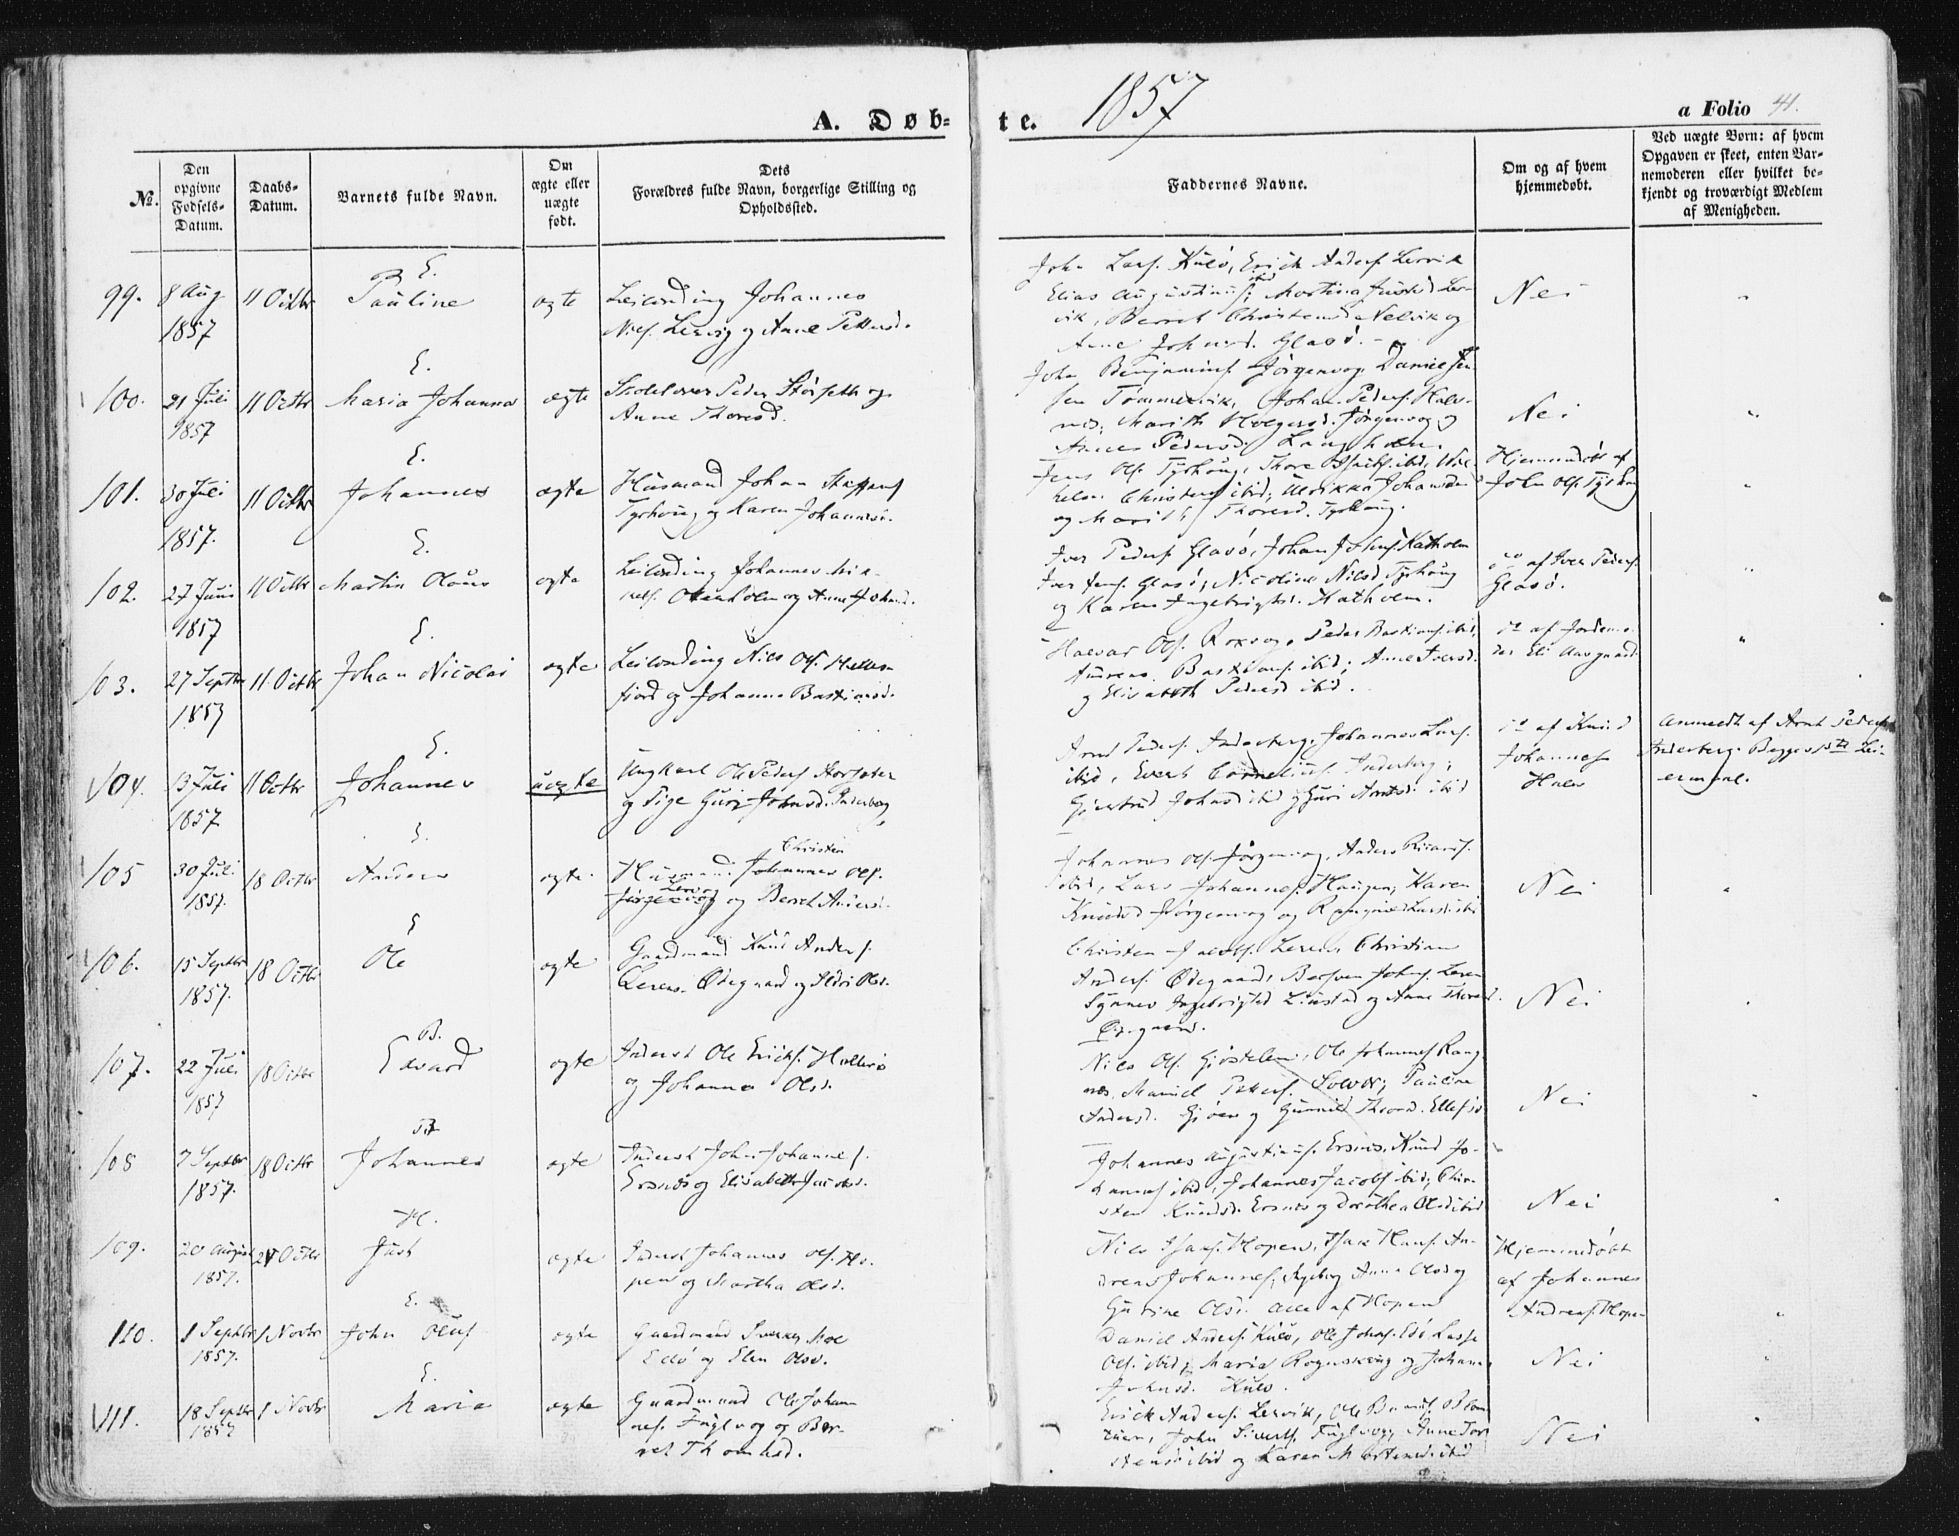 A. Døb-
te.
1857
a Folio 41.
No.
Den opgivne Fødsels-Datum.
Daabs-Datum.
Barnets fulde Navn.
Om ægte eller uægte født.
Dets Forældres fulde Navn, borgerlige Stilling og Opholdssted.
Faddernes Navne.
Om og af hvem hjemmedøbt.
Ved uægte Børn: af hvem Opgaven er skeet, enten Barnemoderen eller hvilket bekjendt og troværdigt Medlem af Menigheden.
E.
99. 8 Aug 1857 11 Octbr Pauline ægte Leilending Johannes
Niels. Lervig og Anne Pettersd.
John Lars. Kulø, Erich Anders. Lervik
Elias Augustinus. ibid Martina Justsd Ler-
vik, Berret Christensd Nelvik og
Anne Johnsd. Glasø.
Nei
E.
100. 21 Juli 1857 11 Octbr Maria Johanna ægte Skolelærer Peder Størseth og
Anne Thoresd.
John Benjamins. Jørgenvog Daniel Jen
sen Tømmervik, Johan Peders. Hals-
næs, Marith Holgersd. Jørgenvog og
Peders. Langholm.
Nei
E.
101. 30 Juli 1857. 11 Octbr Johannes ægte Husmand Johan Steffens
Tyrhoug og Karen Johannesd.
Jens Ols. Tyrhoug, Thore ibid, Wil-
helm Christens. ibid, Ulrikka Johansd
og Marith Thoresd. Tyrhoug.
Hjemmedøbt af
John Ols. Tyrhoug
E.
102. 27 Juni 1857 11 Octbr Martin Olaus ægte Leilending Johannes
og Anne Johnsd.
Iver Peders. Glasø, Johan Johns. Katholm
Iver Jens. Glasø, Nicoline Nilsd Tyrhoug
og Karen Ingebrigtsd. Katholm.
do af Iver Peders.
Glasø.
E.
103. 27 Septbr 1857 11 Octbr Johan Nicolai ægte Leilending Nils Ols.
fjord og Johanna Bastiansd.
Halvar Ols. Roxvog, Peder Bastians. ibid,
Bastians. ibid; Anne Iversd.
og Elisabeth Pedersd ibid.
do af Jordemo-
der Eli Aasgaard.
E.
104. 13 Juli 1857 11 Octbr Johannes uægte Ungkarl Ole Peders
og Pige Guri Johnsd. Inderberg
Arnt Peders. Inderberg, Johannes Lars.
ibid, Evert Cornelius. Inderberg;
Gjertrud Johnsd ibid og Guri Arntsd. ibid
do af Knud
Johannes
Hals
Anmeldt af Arnt Peders
Inderberg. Begges 1ste Lei-
ermaal.
E.
105 30 Juli 1857. 18 Octbr Anders ægte. Husmand Johannes Christen Ols.
Jørgenvog og Berret Andersd.
Johannes Ols. Jørgenvog, Anders
ibid, Lars Johannes. Haugen, Karen
Knudsd Jørgenvog og Ragnild Larsd ibid
Nei
E
106. 15 Septbr 1857. 18 Octbr Ole ægte Gaardmand Knud Anders.
Leren Ødegaard og Ildri Olsd.
Christen Leren, Christian
Anders. Ødegaard, Johns. Leren
Synnev Ingebrigtsd Linstad og Anne Thoresd.
Nei
B.
107. 22 Juli 1857 18 Octbr Edvard ægte Inderst Ole Ericks.
og Johanna Olsd.
Nils Ols. Ole Johannes
Petters. Pauline
Andersd. Gjøen og Gunnild
Nei
B
108 7 Septbr 1857. 18 Octbr Johannes ægte Inderst John Johannes.
Ersnæs og Elisabeth Jacobsd.
Johannes Augustinus. Ersnæs, Knud Jo-
hannes ibid, Johannes Jacobs ibid, Chir-
sten Knudsd. Ersnæs og Dorothea Olsd ibid
Nei
H.
109. 20 August 1857. 24 Octbr Just ægte Inderst Johannes Ols. Ho-
pen og Martha Olsd.
Nils Isacs. Hopen, Isac Hans. An-
dreas Johannes, Ingeborg Anna Olsd og
Gurine Olsd. alle af Hopen
Hjemmedøbt
af Johannes
Andreas. Hopen
E.
110. 1 Septbr 1857. 1 Novbr John Oluf ægte Gaardmand
Edø og Elen Olsd.
Daniel Anders. Kulø, Ole Johns. Edø Lasse
Ols. ibid, Maria og Johanna
Johnsd. Kulø.
Nei
E.
111. 18 Septbr 1857 1 Novbr Maria ægte Gaardmand Ole Johan-
nes. Fuglvog og Ber-
ret Thomasd.
Erick Anders. Lervik, Ole
John Siverts. Fuglvog, Anne Tor
stensd ibid og Karen Mortensd. ibid
Nei